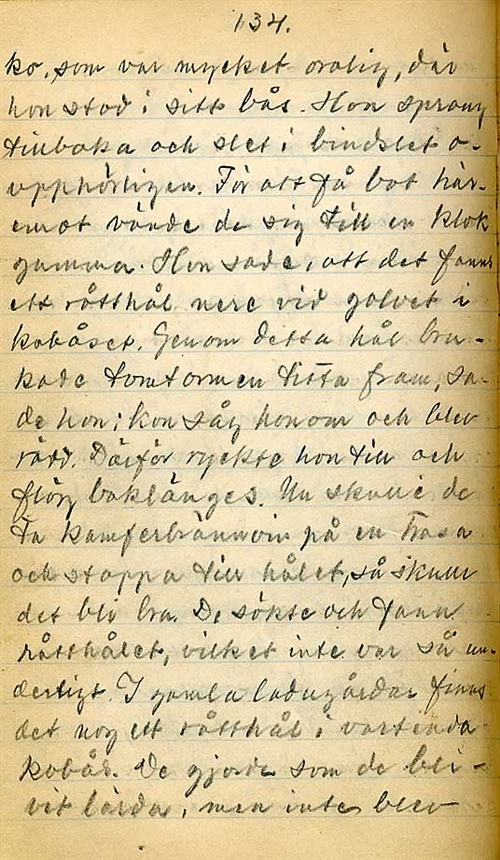 134.
ko, som var mycket orolig, där
hon stod i sitt bås. Hon sprang
tillbaka och slet i bindslet o-
upphörligen. För att få bot här-
emot vände de sig till en klok
gumma. Hon sade, att det fanns
ett råtthål nere vid golvet i
kobåset. Genom detta hål bru-
kade tomtormen titta fram, sa-
de hon; kon såg honom och blev
rädd. Därför ryckte hon till och
flög baklänges. Nu skulle de
ta kamferbrännvin på en trasa
och stoppa till hålet, så skulle
det bli bra. De sökte och fann
råtthålet, vilket inte var så un-
derligt. I gamla ladugårdar finns
det nog ett råtthål i vartenda
kobås. De gjorde som de bli-
vit lärda, men inte blev